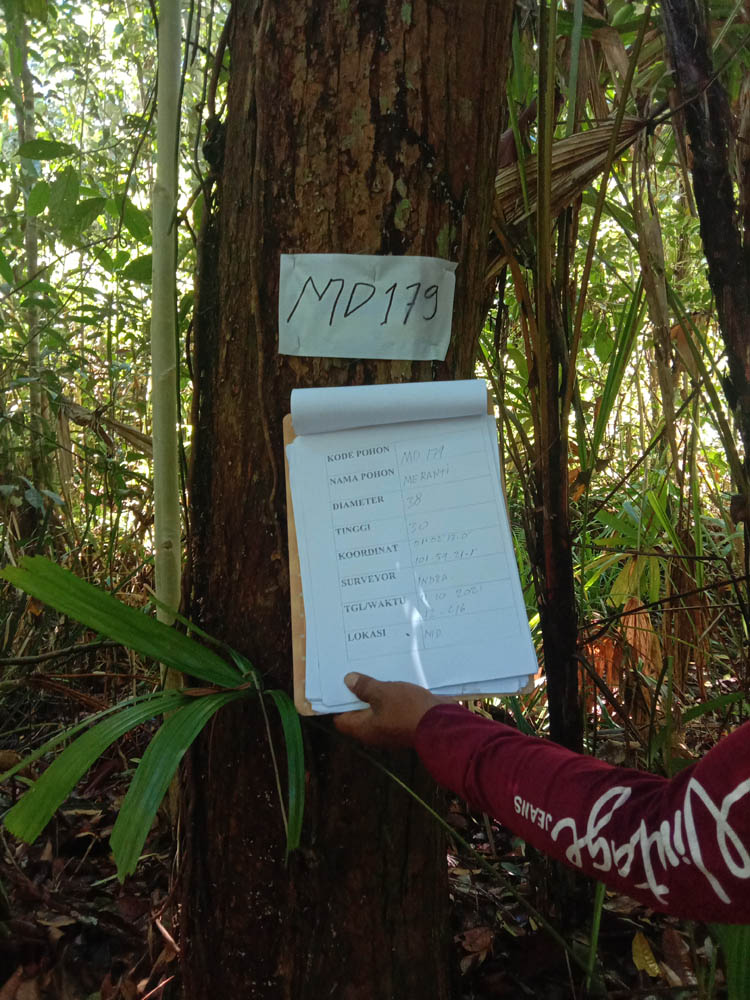 MD179
KODE POHON MD 179
NAMA POHON MERANTI
DIAMETER 38
TINGGI 30
KOORDINAT
101.59.21.5
SURVEYOR INDRA
TGL/WAKTU 10 2021
LOKASI MD
Vintage
JEANS